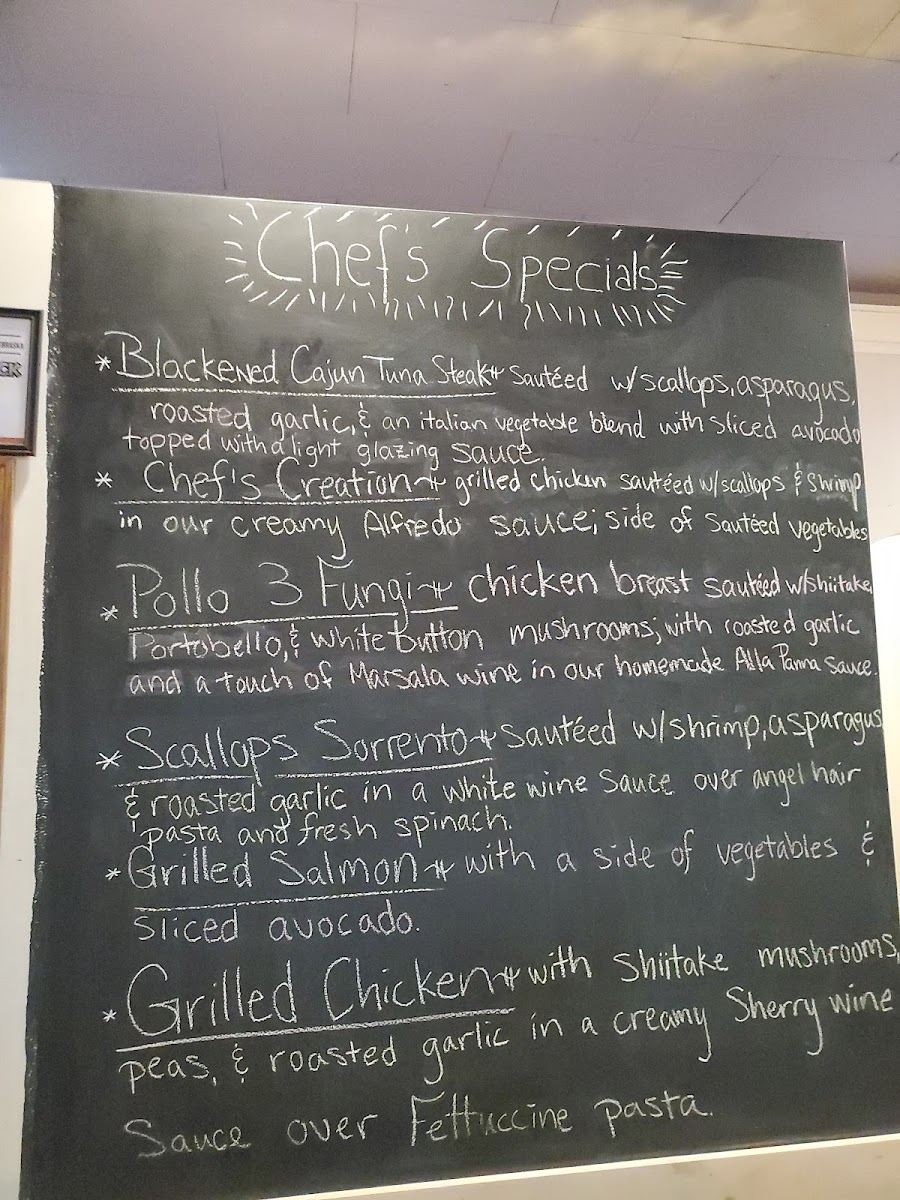 Chef's Specials
* Blackened Cajun Tuna Steak sautéed w/scallops, asparagus,
roasted garlic, & an italian vegetable blend with sliced avocado
topped with a light glazing sauce.
* Chef's Creation grilled chicken sautéed w/scallops & shrimp
in our creamy Alfredo sauce; side of sautéed vegetables
* Pollo 3 Fungi chicken breast sautéed w/shiitake,
Portobello, & white button mushrooms; with roasted garlic
and a touch of Marsala wine in our homemade Alla Panna sauce.
* Scallops Sorrento sautéed w/shrimp, asparagus
& roasted garlic in a white wine sauce over angel hair
pasta and fresh spinach.
* Grilled Salmon with a side of vegetables &
sliced avocado.
* Grilled Chicken with shiitake mushrooms,
peas, & roasted garlic in a creamy Sherry wine
Sauce over Fettuccine pasta.